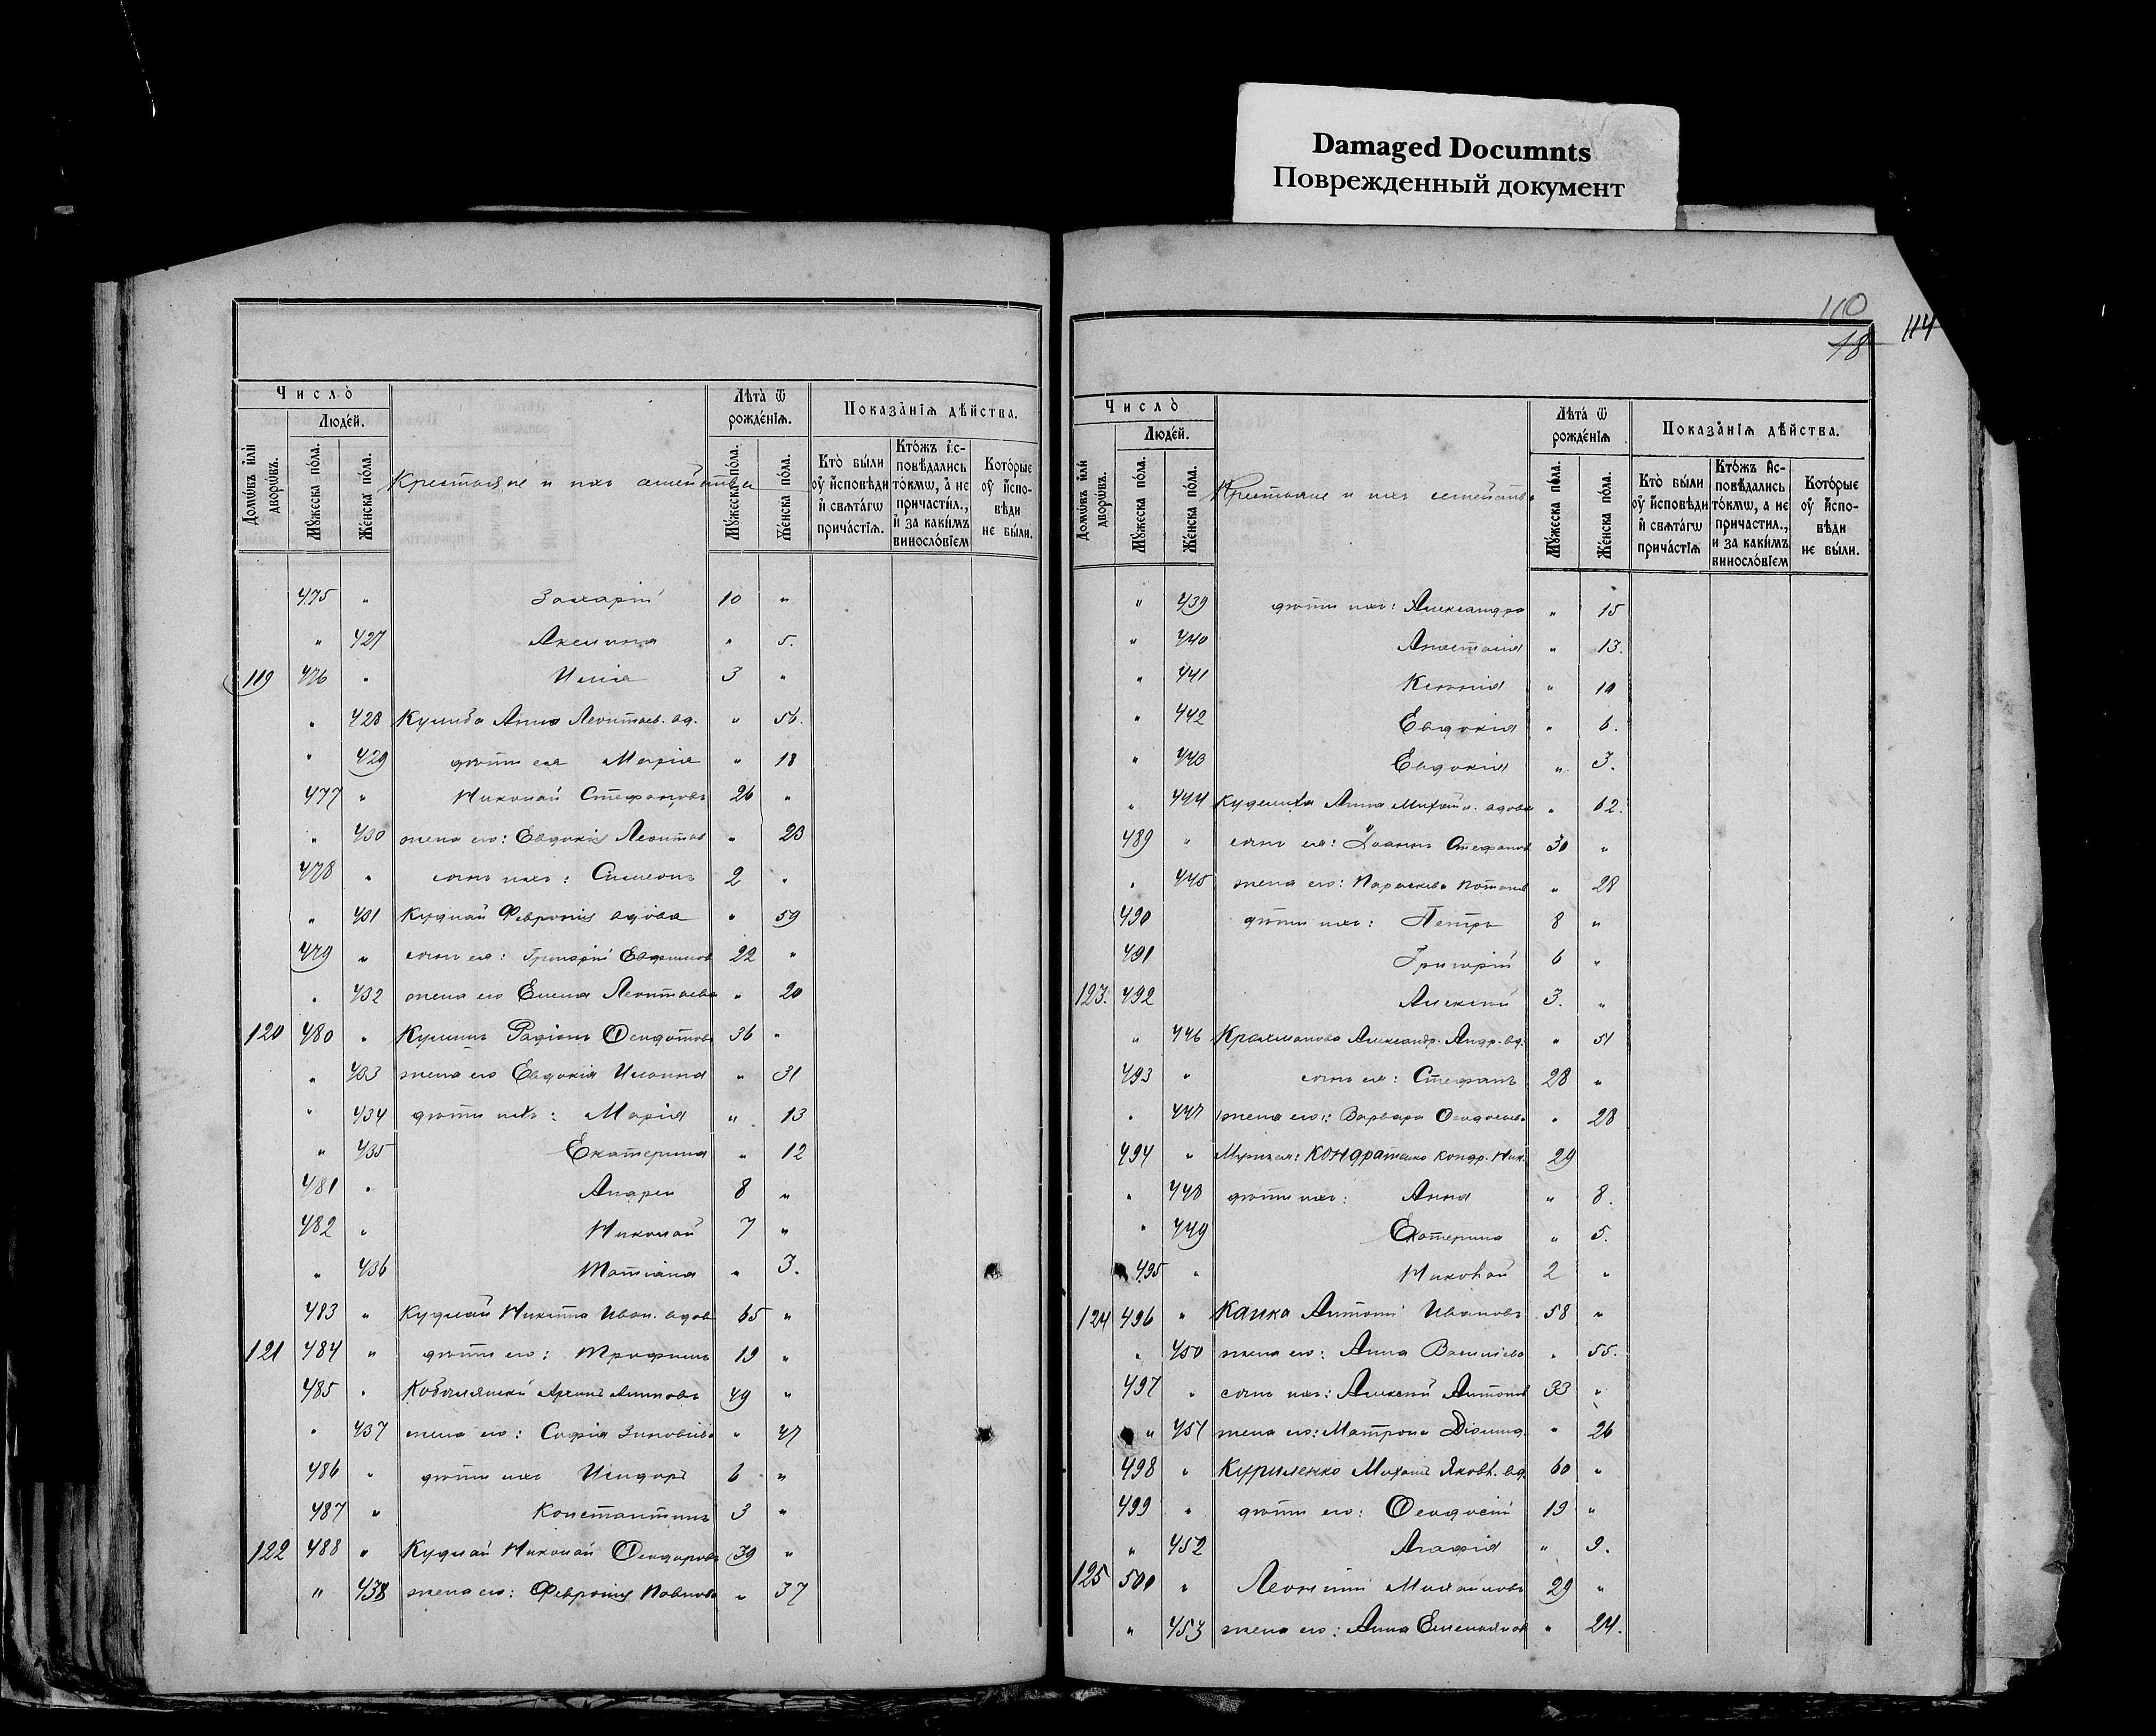 Damaged Documnts
Поврежденный документ
Число̀
Домѡ́въ и҆лѝ дворѡ́въ.
Люде́й.
Мꙋ́жеска по́ла.
Же́нска по́ла.
Крестьяне и ихъ семейства
Лѣта̀ ѿ рожде́нїѧ.
Мꙋ́жеска по́ла.
Же́нска по́ла.
Показа̑нїѧ дѣ́йства.
Кто̀ бы́ли оу҆ и҆сповѣ́ди и҆ свѧта́гѡ прича́стїѧ.
Кто́жъ и҆с-повѣ́дались то́кмѡ, а҆ не причасти́л., и҆ за каки́мъ виносло́вїем
Кото́рые оу҆ и҆спо-вѣди не бы́ли.
475 " Захарій 10 "
" 427 Акилина " 5.
119 476 " Илія 3 "
" 428 Анна Леонтьев. вд. " 56.
" 429 дѣти ея Марія " 18
477 " Николай Стефановъ 26 "
" 430 жена его: Евдокія Леонтов " 23
478 " сынъ ихъ: Симеонъ 2 "
" 431 Кудлай Февронія вдова " 59
479 " сынъ ея: Григорій Евфимов 22 "
" 432 жена его Елена Леонтьева " 20
120 480 " Родіонъ Ѳеодотовъ 36 "
" 433 жена его Евдокія " 31
" 434 дѣти ихъ: Марія " 13
" 435 Екатерина " 12
481 " Андрей 8 "
482 " Николай 7 "
" 436 Татіана " 3.
483 " Кудлай Никита Иван. вдов 65 "
121 484 " дѣти его: Трофимъ 19 "
485 " Кобылянскій 49 "
" 437 жена его: Софія Зиновіева " 47
486 " дѣти ихъ Исидоръ 6 "
487 " Константинъ 3 "
122 488 " Кудлай Николай Ѳеодоровъ 39 "
" 438 жена его: Февронія Павлова " 37
110
18
114
Число̀
Домѡ́въ и҆лѝ дворѡ́въ.
Люде́й.
Мꙋ́жеска по́ла.
Же́нска по́ла.
Крестьяне и ихъ семейства
Лѣта̀ ѿ рожде́нїѧ
Мꙋ́жеска по́ла.
Же́нска по́ла.
Показа̑нїѧ дѣ́йства.
Кто̀ бы́ли оу҆ и҆сповѣ́ди и҆ свѧта́гѡ прича́стїѧ
Кто́жъ и҆с-повѣ́дались то́кмѡ, а не причастил., и за каки́мъ виносло́вїем
Кото́рые оу҆ и҆спо-вѣди не бы́ли.
" 439 дѣти ихъ: Александра " 15
" 440 Анастасія " 13.
" 441 Ксенія " 10
" 442 Евдокія " 6.
" 443 Евдокія " 3.
" 444 Анна Михайл. вдова " 62.
489 " сынъ ея: Іоаннъ Стефанов 30 "
" 445 жена его: Параскева Потапов " 28
490 дѣти ихъ: Петръ 8 "
491 Григорій 6 "
123. 492 Алексій 3. "
" 446 Крахмалова Александр. Андр. вд. " 51
493 " сынъ ея: Стефанъ 28 "
" 447 жена его: Варвара " 28
494 " Кондратенко Кондр. Ник. 29
" 448 дѣти ихъ: Анна " 8.
" 449 Екатерина " 5.
495 " Николай 2 "
124 496 " Антоній Ивановъ 58 "
" 450 жена его: Анна Василіева " 55.
497 " сынъ ихъ: Алексій Антонов 33 "
" 451 жена его: Матрона Діомид. " 26
498 " Куриленко Михаилъ Яковл. вд. 60 "
499 " дѣти его: Ѳеодосій 19 "
" 452 Агафія " 9.
125 500 " Леонтій Михайловъ 29 "
" 453 жена его: Анна Емельянов " 24.